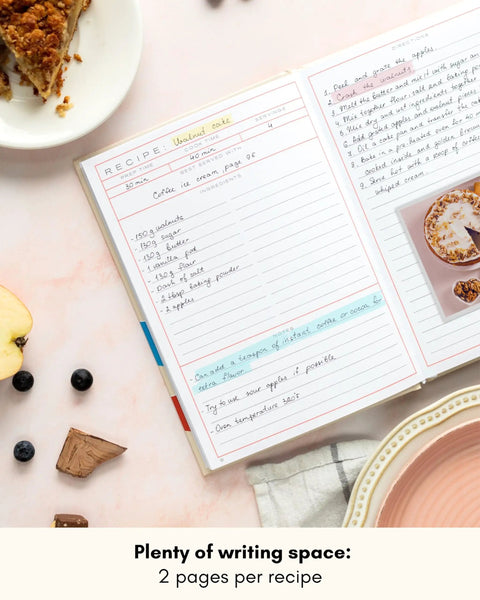 RECIPE: Walnut cake
PREP TIME COOK TIME SERVINGS
30 min 40 min 4
BEST SERVED WITH
Coffee ice cream, page 96
INGREDIENTS
- 150 g walnuts
- 130 g sugar
- 130 g butter
- 1 vanilla pod
- 130 g flour
- Dash of salt
- 2 tbsp baking powder
- 2 apples
NOTES
- Can add a teaspoon of instant coffee or cocoa for
extra flavor
Try to use sour apples if possible
- Oven temperature 320°s
DIRECTIONS
1. Peel and grate the apples.
2. Crash the walnuts
3. Melt the butter and mix it with sugar an
4. Mix together flour, salt and baking po
5. Mix dry and wet ingredients together
6. Add grated apples and walnut pieces
7. Oil a cake pan and transfer the
8. Bake in a pre-heated oven for 40 m
cooked inside and golden brown
9. Serve hot with a scoop of coffee
whipped cream.
Plenty of writing space:
2 pages per recipe